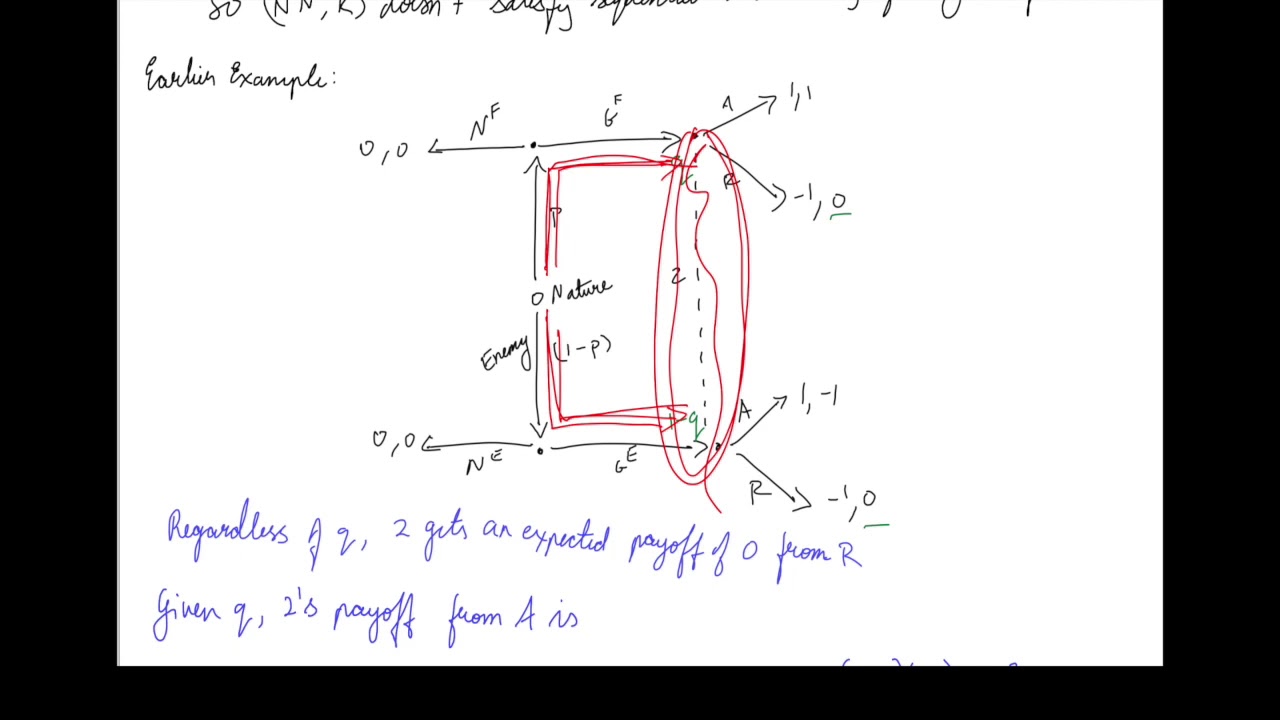 so (NN, R) doesn't satisfy
Earlier Example:
A 1, 1
N^F G^F
0, 0
R
-1, 0
P
2
0 Nature
Enemy (1-p)
A 1, -1
q
0, 0
N^E G^E
R -1, 0
Regardless of q, 2 gets an expected payoff of 0 from R
Given q, 2's payoff from A is